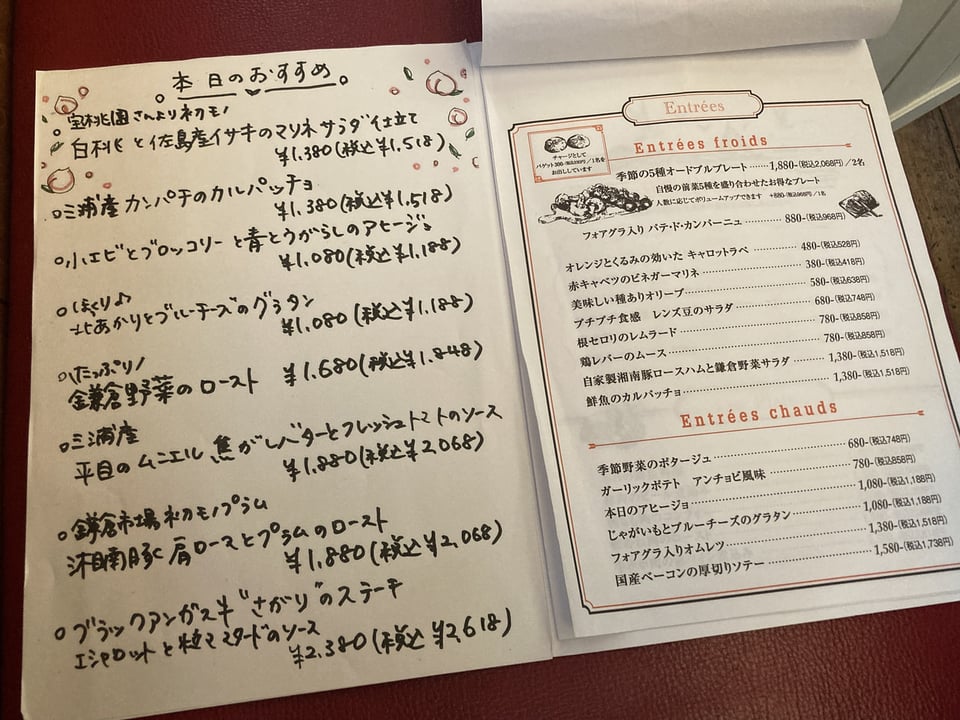 本日のおすすめ
宝桃園さんより初モノ
白桃と佐島産イサキのマリネサラダ仕立て
¥1.380(税込¥1.518)
三浦産カンパチのカルパッチョ
¥1.380(税込¥1,518)
小エビとブロッコリーと青とうがらしのアヒージョ
¥1.080(税込¥1.188)
ほくり♪
北あかりとブルーチーズのグラタン
¥1.080(税込¥1.188)
たっぷり!
鎌倉野菜のロースト ¥1.680(税込¥1.848)
三浦産
平目のムニエル 焦がしバターとフレッシュトマトのソース
¥1.880(税込¥2.068)
鎌倉市場初モノプラム
湘南豚肩ロースとプラムのロースト
¥1.880(税込¥2,068)
ブラックアンガス牛"さがり"のステーキ
エシャロットと粒マスタードのソース
¥2.380(税込¥2,618)
Entrées
Entrées froids
チャージとして
バゲット300-(税込330円)/1名を
お出ししています
季節の5種オードブルプレート……1,880-(税込2,068円)/2名
自慢の前菜5種を盛り合わせたお得なプレート
人数に応じてボリュームアップできます +880-(税込968円)/1名
フォアグラ入り パテ・ド・カンパーニュ……880-(税込968円)
オレンジとくるみの効いた キャロットラペ……480-(税込528円)
赤キャベツのビネガーマリネ……380-(税込418円)
美味しい種ありオリーブ……580-(税込638円)
プチプチ食感 レンズ豆のサラダ……680-(税込748円)
根セロリのレムラード……780-(税込858円)
鶏レバーのムース……780-(税込858円)
自家製湘南豚ロースハムと鎌倉野菜サラダ……1,380-(税込1,518円)
鮮魚のカルパッチョ……1,380-(税込1,518円)
Entrées chauds
季節野菜のポタージュ……680-(税込748円)
ガーリックポテト アンチョビ風味……780-(税込858円)
本日のアヒージョ……1,080-(税込1,188円)
じゃがいもとブルーチーズのグラタン……1,080-(税込1,188円)
フォアグラ入りオムレツ……1,380-(税込1,518円)
国産ベーコンの厚切りソテー……1,580-(税込1,738円)